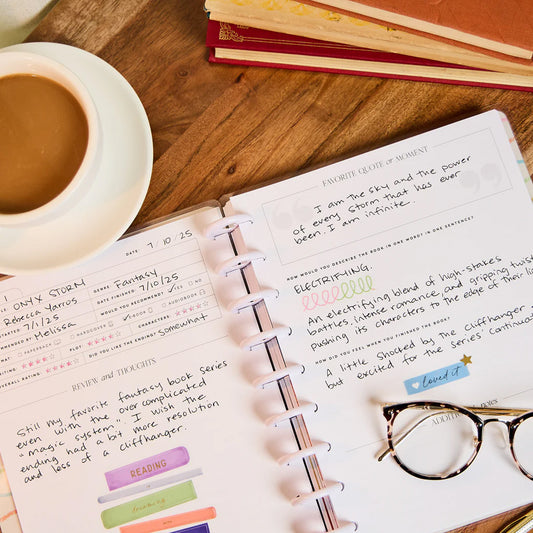 1
DATE 7/10/25
ONYX STORM
GENRE Fantasy
Rebecca Yarros
DATE FINISHED 7/10/25
STARTED 7/1/25
WOULD YOU RECOMMEND? YES NO
Melissa
PAPERBACK HARDCOVER E-BOOK AUDIOBOOK
CHARACTERS:
OVERALL RATING
DID YOU LIKE THE ENDING? somewhat
REVIEW AND THOUGHTS
Still my favorite fantasy book series
even with the over complicated
"magic system". I wish the
ending had a bit more resolution
and less of a cliffhanger.
READING
FAVORITE QUOTE OR MOMENT
I am the sky and the power
of every storm that has ever
been. I am infinite.
HOW WOULD YOU DESCRIBE THE BOOK IN ONE WORD? IN ONE SENTENCE?
ELECTRIFYING.
An electrifying blend of high-stakes
battles, intense romance, and gripping twist
pushing its characters to the edge of their li
HOW DID YOU FEEL WHEN YOU FINISHED THE BOOK?
A little shocked by the cliffhanger
but excited for the series' continua
loved it
ADDITIONAL notes